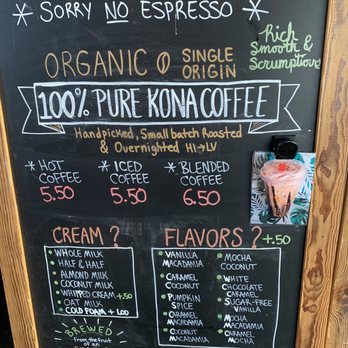 * SORRY NO ESPRESSO *
Rich
Smooth &
Scrumptious
ORGANIC SINGLE
ORIGIN
100% PURE KONA COFFEE
Handpicked, Small batch Roasted
& Overnighted HI→LV
* HOT COFFEE
5.50
* ICED COFFEE
5.50
* BLENDED COFFEE
6.50
CREAM?
• WHOLE MILK
• HALF & HALF
• ALMOND MILK
• COCONUT MILK
• WHIPPED CREAM +.50
• OAT MILK
• COLD FOAM + 1.00
FLAVORS? +.50
• VANILLA
MACADAMIA
• CARAMEL
COCONUT
• PUMPKIN
SPICE
• CARAMEL
MACADAMIA
• COCONUT
MACADAMIA
• MOCHA
COCONUT
• WHITE
CHOCOLATE
CARAMEL
• SUGAR-FREE
VANILLA
• MOCHA
MACADAMIA
• CARAMEL
MOCHA
BREWED
from the fruit
of an